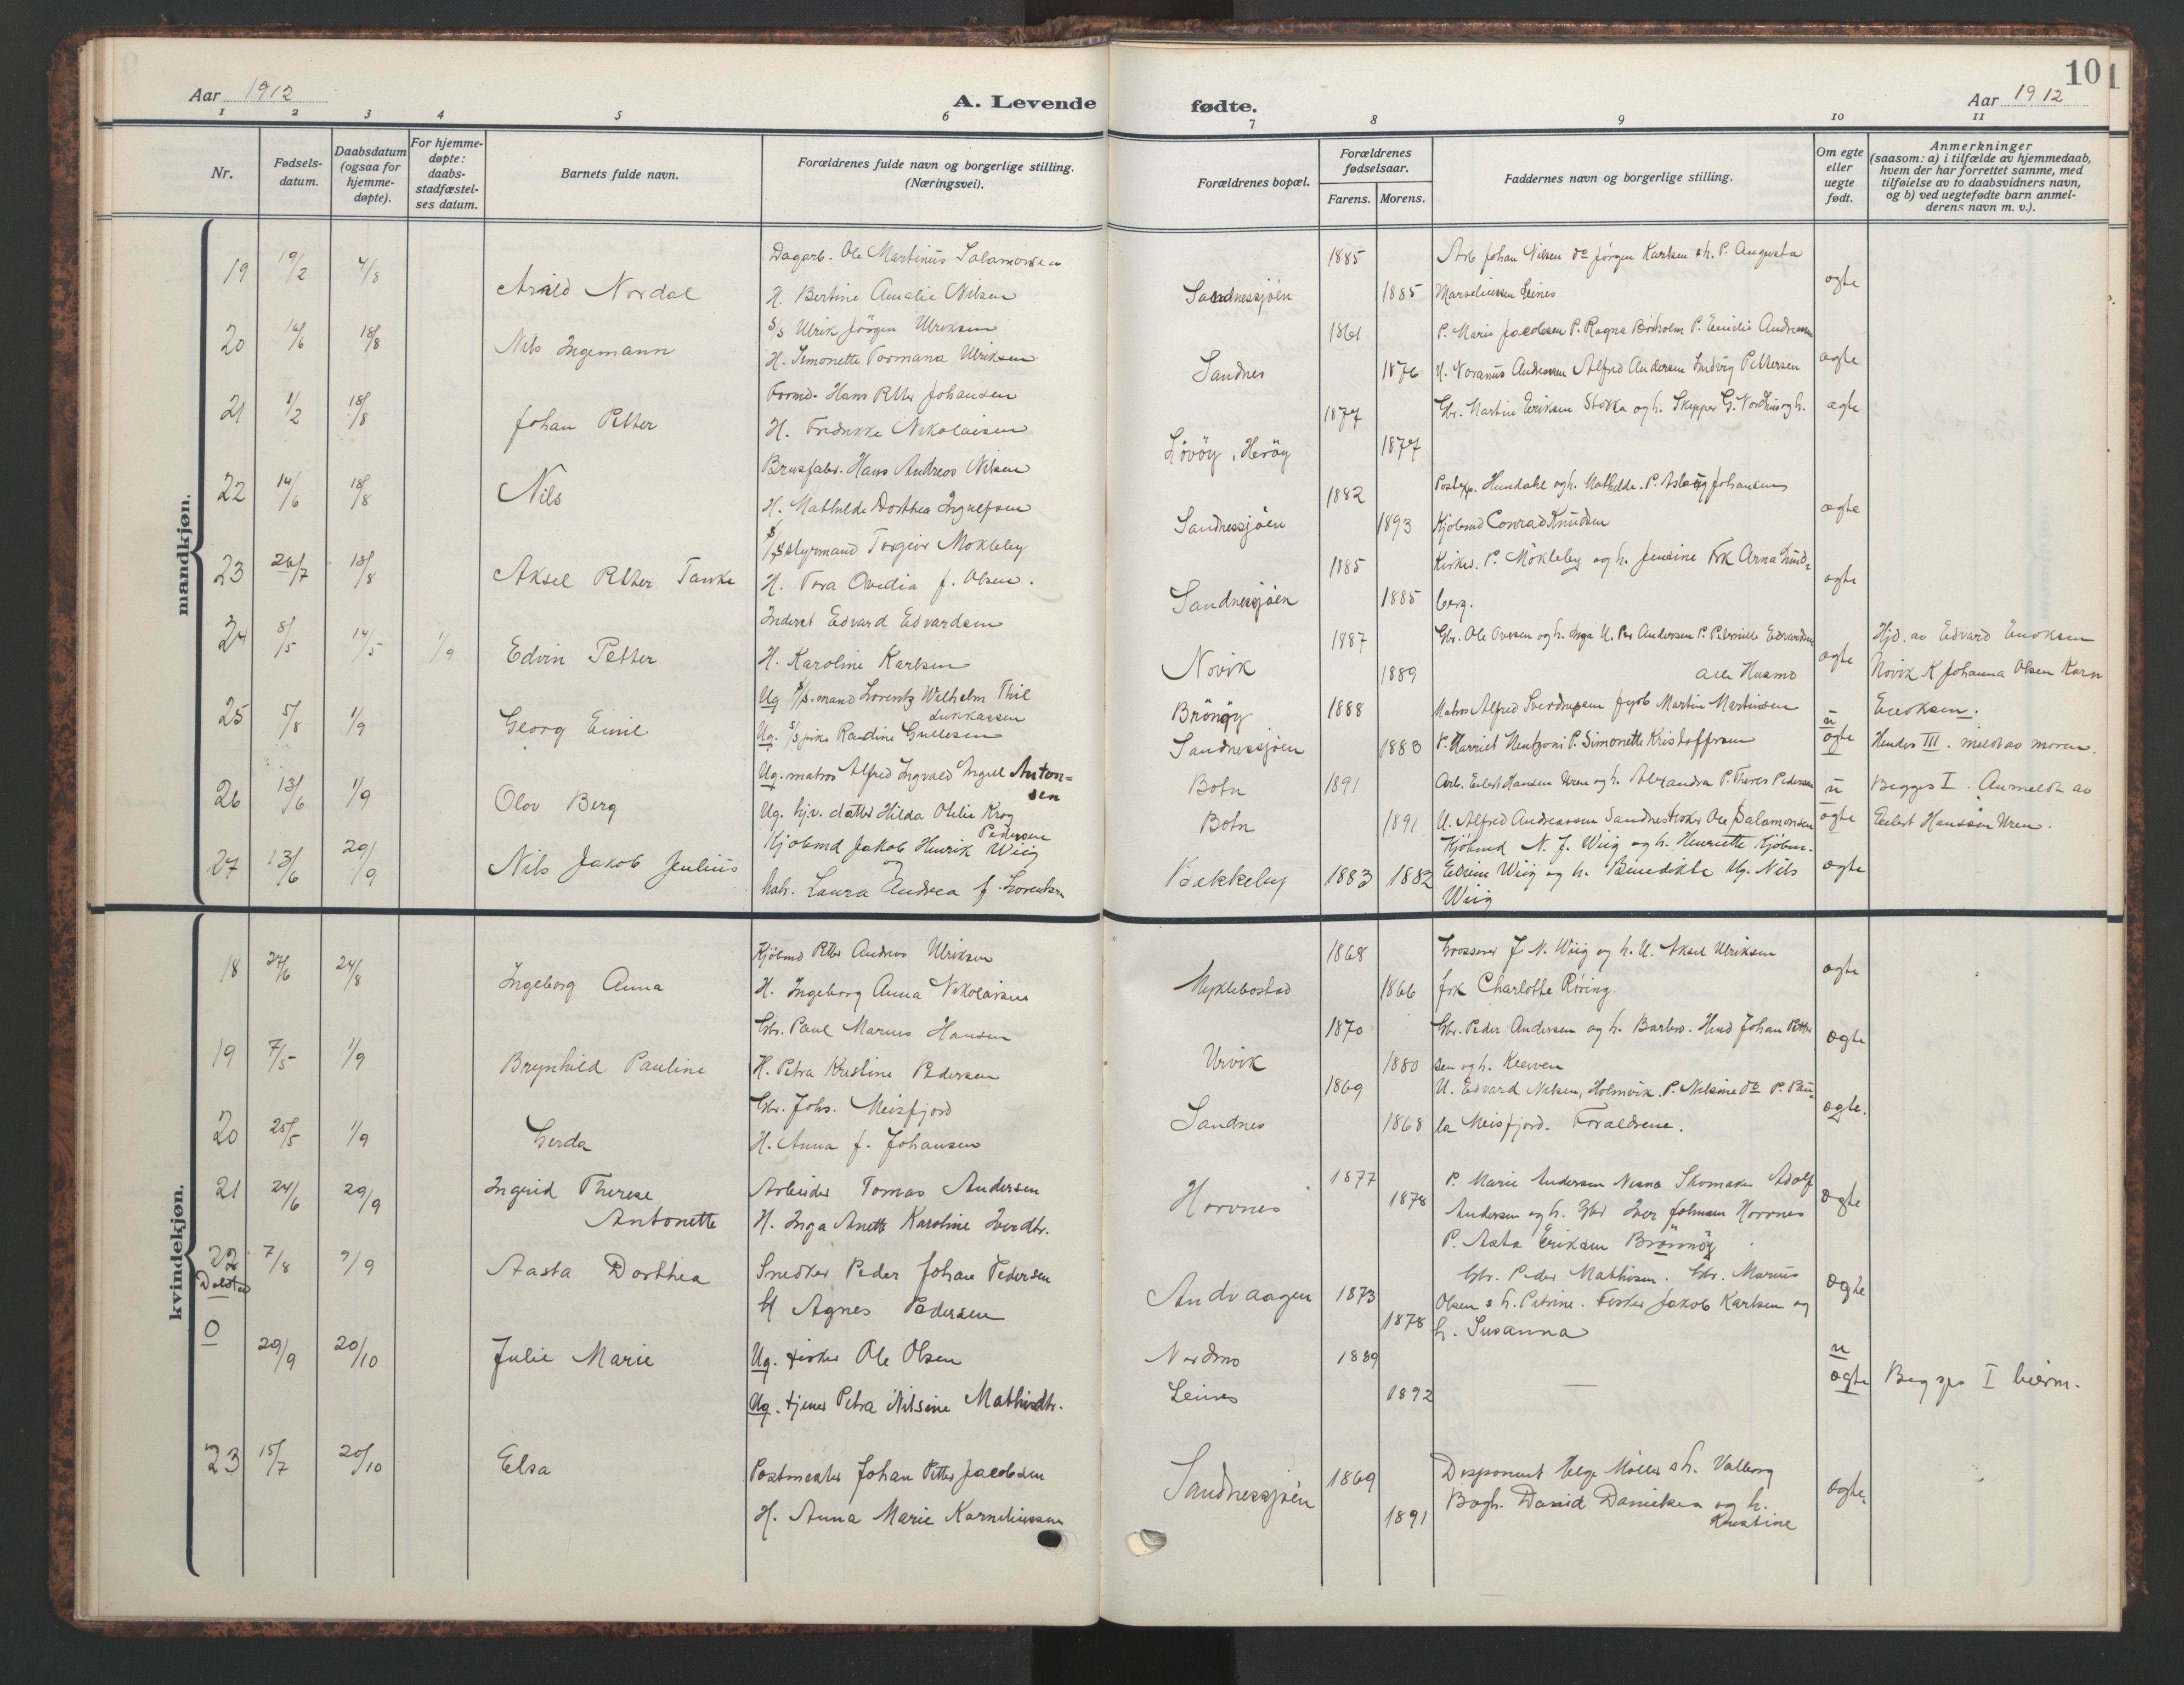 Aar 1912
A. Levende fødte.
Aar 1912
10
1 2 3 4 5 6 7 8 9 10 11
Nr.
Fødsels-
datum.
Daabsdatum
(ogsaa for
hjemme-
døpte).
For hjemme-
døpte:
daabs-
stadfæstel-
ses datum.
Barnets fulde navn.
Forældrenes fulde navn og borgerlige stilling.
(Næringsvei).
Forældrenes bopæl.
Forældrenes
fødselsaar.
Farens. Morens.
Faddernes navn og borgerlige stilling.
Om egte
eller
uegte
født.
Anmerkninger
(saasom: a) i tilfælde av hjemmedaab,
hvem der har forrettet samme, med
tilføielse av to daabsvidners navn,
og b) ved uegtefødte barn anmel-
derens navn m. v.).
mandkjøn.
19 19/2 4/8 Arnild Nordal
Dagarb. Ole Martinus Salamonsen
H. Bertine Amalie Nilsen
Sandnessjøen 1885 1885
Arb Johan Nilsen do Jørgen Karlsen & h. P. Augusta
Marseliussen Leines
ægte
20 16/6 18/8 Nils Ingemann
S/s Ulrik Jørgen Ulriksen
H. Simonette Tormana Ulriksen
Sandnes 1861 1876
P. Marie Jacobsen P. Ragna Bórholm P. Emilie Andreassen
U. Noranus Andreassen Alfred Andersen Ludvig Pettersen
ægte
21 1/2 18/8 Johan Petter
Formd. Hans Petter Johansen
H. Fredrikke Nikolaisen
Løvøy, Herøy 1877 1877
Gbr. Martin Eriksen Stokka og h. Skipper G. Nordhus og h.
ægte
22 14/6 18/8 Nils
Brusfabr. Hans Andreas Nilsen
H. Mathilde Dorthea Ingulfsen
Sandnessjøen 1882 1893
Postexp. Hundahl og h. Mathilde. P. Aslaug Johansen
Kjøbmd Conrad Knudsen
ægte
23 26/7 18/8 Aksel Petter Tanke
S/Styrmand Torgeir Mökleby
H. Tora Ovedia f. Olsen.
Sandnessjøen 1885 1885
Kirkes. P. Mökleby og h. Jensine Frk Arna Lund-
berg.
ægte
24 8/5 14/5 1/9 Edvin Petter
Inderst Edvard Edvardsen
H. Karoline Karlsen
Novik 1887 1889
Gbr. Ole Ovesen og h. Inga U. Per Andersen P. Petronille Edvardsen
alle Husmo
ægte
Hjd. av Edvard Enoksen
Novik K Johanna Olsen Karn
Enoksen.
25 5/8 1/9 Georg Emil
Ug S/s.mand Lorentz Wilhelm Thil
Lukkassen
Ug. S/s pike Randine Gullesen
Brønøy
Sandnessjøen 1888 1883
Matros Alfred Sverdrupsen fyrb Martin Martinsen
P. Harriet Hentzoni P. Simonette Kristoffersen
u
ægte
Hendes III. meldt av moren.
26 13/6 1/9 Olov Berg
Ug. matros Alfred Ingvald Ingell Anton-
sen
Ug. hjv. datter Hilda Otelie Krog
Pedersen
Botn
Botn 1891 1891
Arb. Eilert Hansen Uren og h. Alexandra P. Theres Pedersen
U. Alfred Andreassen Sandnes Fisker Ole Salamonsen
u
ægte
Begges I. Anmeldt av
Eilert Hanssen Uren.
27 13/6 29/9 Nils Jakob Julius
Kjøbmd Jakob Henrik Wiig
og
hstr. Laura Andrea f. Lorentsen
Bakkeby 1883 1882
Kjøbmd N. J. Wiig og h. Henriette Kjøbm.
Edvin Wiig og h. Benedikte Ug. Nils
Wiig
ægte
kvindekjøn.
18 24/6 24/8 Ingeborg Anna
Kjøbmd Petter Andreas Ulriksen
H. Ingeborg Anna Nikolaisen
Myklebostad 1868 1866
Grosserer J. N. Wiig og h. U. Aksel Ulriksen
frk Charlotte Röring.
ægte
19 7/5 1/9 Brynhild Pauline
Gbr. Paul Marius Hansen
H. Petra Kristine Pedersen
Urvik 1870 1880
Gbr. Peder Andersen og h. Barbro. Hmd Johan Petter
sen og h.
ægte
20 25/5 1/9 Gerda
Gbr. Johs. Meisfjord
H. Anna f. Johansen
Sandnes 1869 1868
U. Edvard Nilsen, Holmvik. P. Nilsine do P. Pau-
la Meisfjord. Foraldrene.
ægte.
21 24/6 29/9 Ingrid Therese
Antonette
Arbeider Tomas Andersen
H. Inga Anette Karoline Iversdtr.
Horvnes 1877 1878
P. Marie Andersen Nesna Skomaker Adolf
Andersen og h. Gbr Iver Johnsen Horvnes
P. Asta Eriksen Brønnøy
ægte
22 7/8 9/9 Aasta Dorthea
Dolstad
Snedker Peder Johan Pedersen
H Agnes Pedersen
Andraagen 1873 1878
Gbr. Peder Mathisen. Gbr. Marius
Olsen & h. Petrine. Fisker Jakob Karlsen og
h. Susanna
ægte
0 29/9 20/10 Julie Marie
Ug. fisker Ole Olsen
Ug. tjener Petra Nilsine Mathisdtr.
Nordmo
Leines 1889 1892
—
u
ægte
Begges I barn.
23 15/7 20/10 Elsa
Postmester Johan Petter Jacobsen
H. Anna Marie Korneliussen
Sandnessjøen 1869 1891
Disponent Helge Möller & h. Valborg
Bagh. David Danielsen og h.
Kristine
ægte.